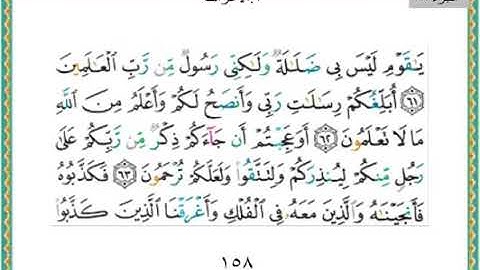 يَٰقَوۡمِ لَيۡسَ بِي ضَلَٰلَةٞ وَلَٰكِنِّي رَسُولٞ مِّن رَّبِّ ٱلۡعَٰلَمِينَ
٦١ أُبَلِّغُكُمۡ رِسَٰلَٰتِ رَبِّي وَأَنصَحُ لَكُمۡ وَأَعۡلَمُ مِنَ ٱللَّهِ
مَا لَا تَعۡلَمُونَ ٦٢ أَوَعَجِبۡتُمۡ أَن جَآءَكُمۡ ذِكۡرٞ مِّن رَّبِّكُمۡ عَلَىٰ
رَجُلٖ مِّنكُمۡ لِيُنذِرَكُمۡ وَلِتَتَّقُواْ وَلَعَلَّكُمۡ تُرۡحَمُونَ ٦٣ فَكَذَّبُوهُ
فَأَنجَيۡنَٰهُ وَٱلَّذِينَ مَعَهُۥ فِي ٱلۡفُلۡكِ وَأَغۡرَقۡنَا ٱلَّذِينَ كَذَّبُواْ
١٥٨